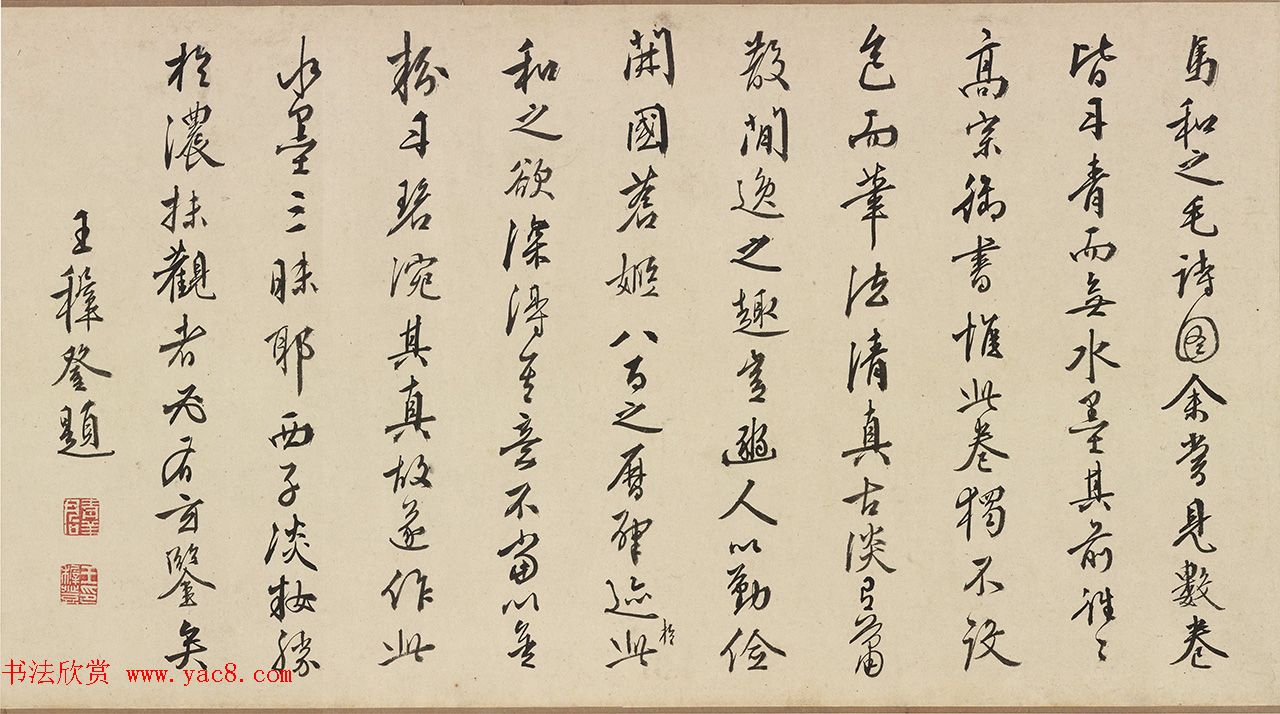 馬和之毛詩圖余嘗見數卷
皆丹青而無水墨其前往〻
高宗御書惟此卷獨不設
色而筆法清真古淡有蕭
散閒逸之趣意豳人以勤儉
開國蒼姬八百之曆肇迹於此
和之欲深得其意不當以金
粉丹碧涴其真故遂作此
水墨三昧耶西子淡妝勝
於濃抹觀者必有玄鑒矣
王穉登題
王印穉登
书法欣赏 www.yac8.com